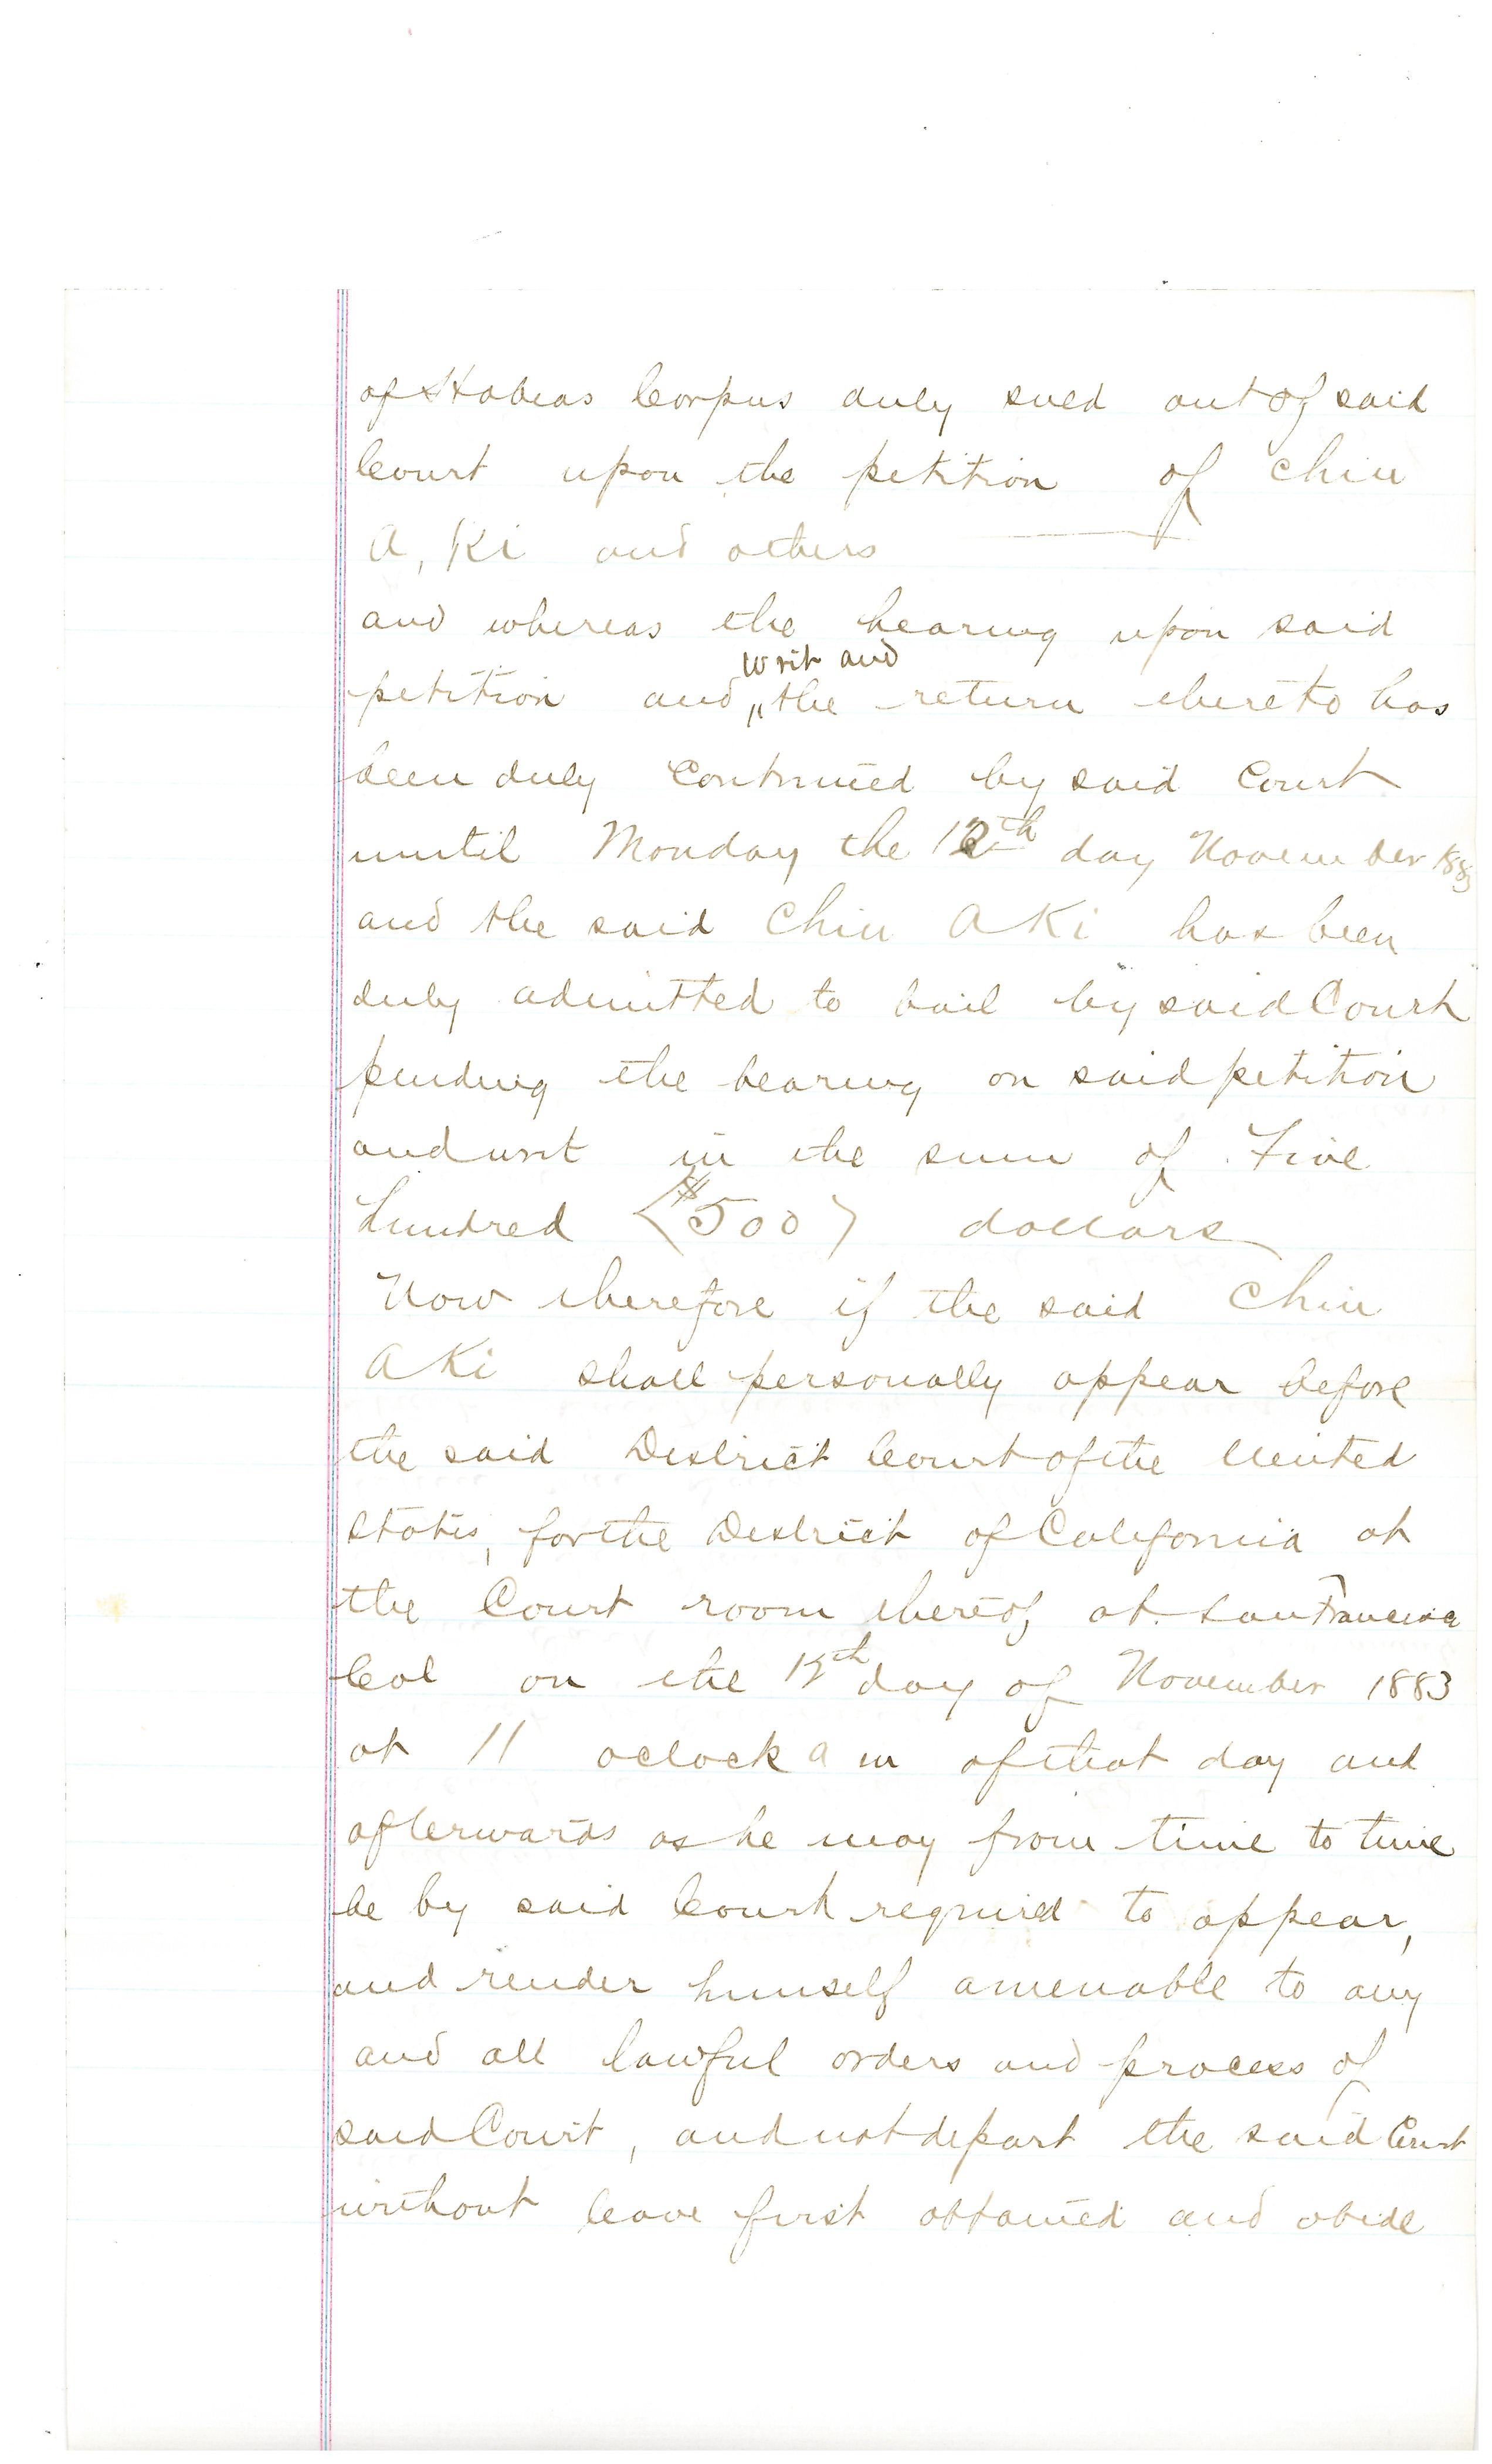 of Habeas Corpus duly sued out of said
Court upon the petition of Chin
A, Ki and others
and whereas the hearing upon said
writ and
petition and " the return thereto has
been duly continued by said Court
until Monday the 12th day November 1883
and the said Chin A Ki has been
duly admitted to bail by said Court
pending the hearing on said petition
and writ in the sum of Five
hundred ($500) dollars
Now therefore if the said Chin
A Ki shall personally appear before
the said District Court of the United
States, for the District of California at
the Court room thereof at San Francisco
Cal on the 12th day of November 1883
at 11 oclock a m of that day and
afterwards as he may from time to time
be by said Court required to appear,
and render himself amenable to any
and all lawful orders and process of
said Court, and not depart the said Court
without leave first obtained and abide